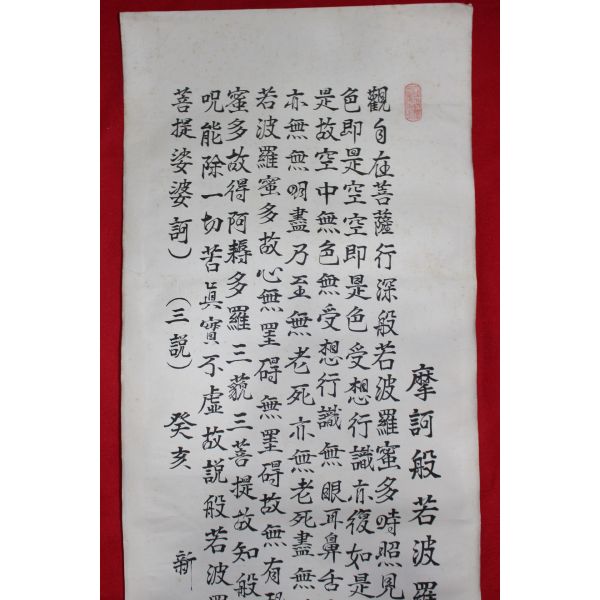 摩訶般若波羅
觀自在菩薩行深般若波羅蜜多時照見
色即是空空即是色受想行識亦復如是
是故空中無色無受想行識無眼耳鼻舌
亦無無明盡乃至無老死亦無老死盡無
若波羅蜜多故心無罣碍無罣碍故無有恐
蜜多故得阿耨多羅三藐三菩提故知般
呪能除一切苦眞實不虛故說般若波羅
菩提娑婆訶) (三說) 癸亥 新